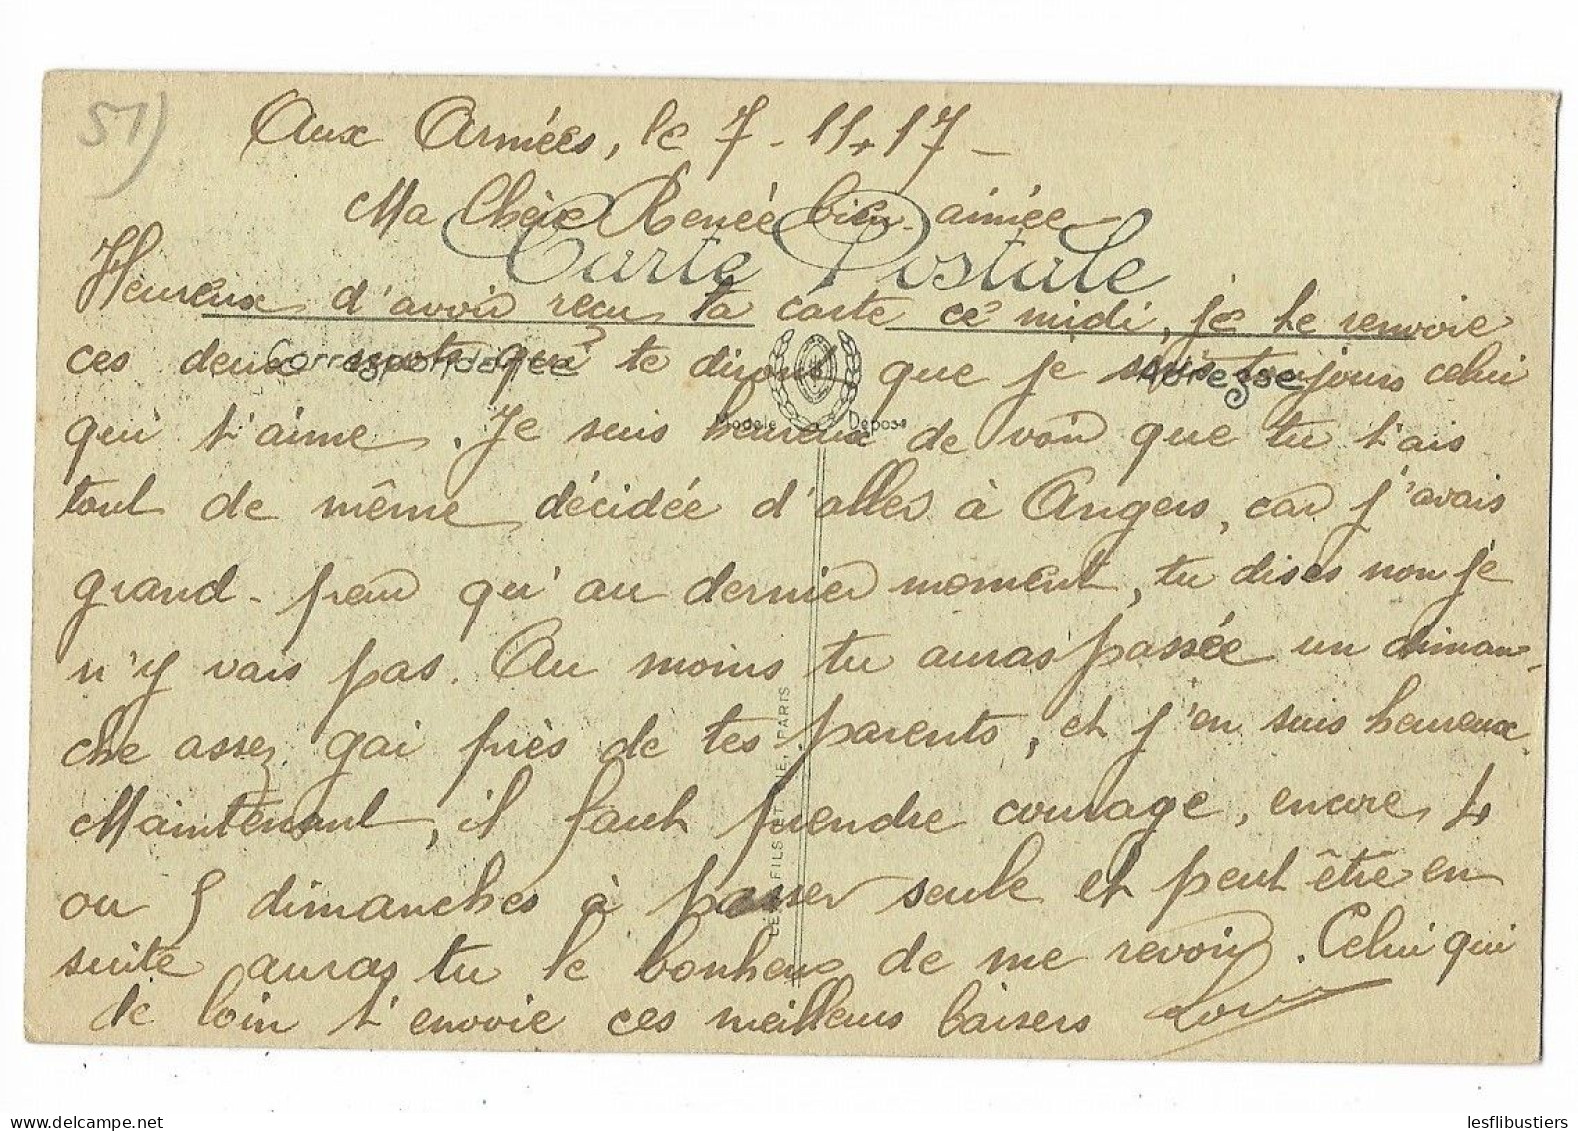 51)
Aux Armées, le 7-11-17-
Ma Chère Renée bien aimée
Carte Postale
Heureux d'avoir reçu ta carte ce midi, je te renvoie
Correspondance
Adresse
ces deux mots qui te diront que je suis toujours celui
Modèle Déposé
qui t'aime. Je suis heureux de voir que tu t'ais
tout de même décidée d'aller à Angers, car j'avais
grand-peur qu'au dernier moment, tu dises non je
n'y vais pas. Au moins tu auras passée un diman-
che assez gai près de tes parents, et j'en suis heureux.
Maintenant, il faut prendre courage, encore 4
ou 5 dimanches à passer seule et peut être en
suite auras tu le bonheur de me revoir. Celui qui
de loin t'envoie ces meilleurs baisers
FILS ET CIE, PARIS
lesflibustiers